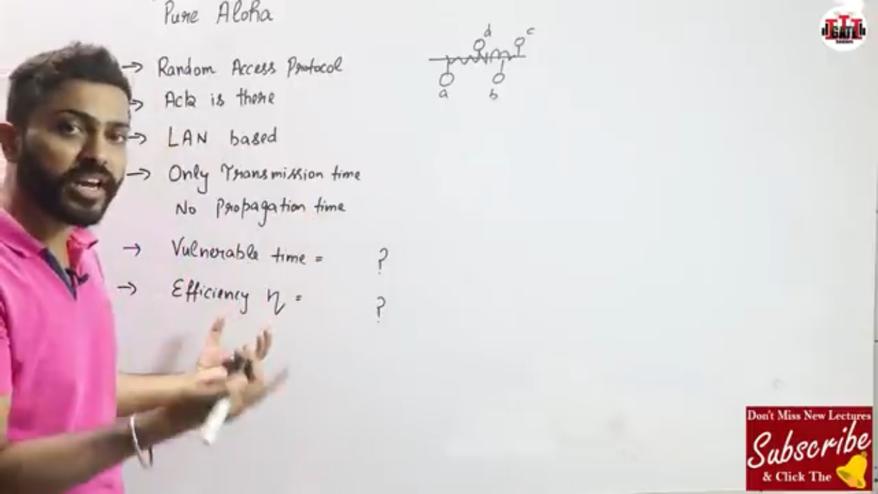 Pure Aloha
→ Random Access Protocol
→ Ack is there
→ LAN based
→ Only Transmission time
No Propagation time
→ Vulnerable time = ?
→ Efficiency η = ?
d
c
a
b
GATE
Don't Miss New Lectures
Subscribe
& Click The